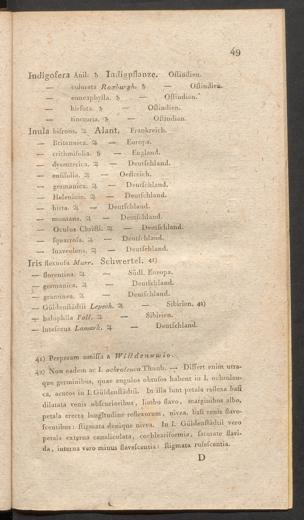 49
Indigofera Anil. ♄ Indigpflanze. Oſtindien.
— colorata Roxburgh. ♄ — Oſtindien.
— enneaphylla. ♄ — Oſtindien.
— hirſuta. ♄ — Oſtindien.
— tinctoria. ♄ — Oſtindien.
Inula bifrons. ♃ Alant. Frankreich.
— Britannica. ♃ — Europa.
— crithmifolia. ♄ — England.
— dyſenterica. ♃ — Deutſchland.
— enſifolia. ♃ — Oeſtreich.
— germanica. ♃ — Deutſchland.
— Helenium. ♃ — Deutſchland.
— hirta. ♃ — Deutſchland.
— montana. ♃ — Deutſchland.
— Oculus Chriſti. ♃ — Deutſchland.
— ſquarroſa. ♃ — Deutſchland.
— ſuaveolens. ♃ — Deutſchland.
Iris flexuoſa Murr. Schwertel. 41)
— florentina. ♃ — Südl. Europa.
— germanica. ♃ — Deutſchland.
— graminea. ♃ — Deutſchland.
— Güldenſtädtii Lepech. ♃ Sibirien. 42)
— halophila Pall. ♃ — Sibirien.
— luteſcens Lamark. ♃ — Deutſchland.
41) Perperam omiſſa a Willdenowio.
42) Non eadem ac I. ochroleuca Thunb. — Differt enim utra-
que germinibus, quae angulos obtuſos habent in I. ochroleu-
ca, acutos in I. Güldenſtädtii. In illa ſunt petala reflexa baſi
dilatata venis obſcurioribus, limbo flavo, marginibus albo,
petala erecta longitudine reflexorum, nivea, baſi venis flave-
ſcentibus: ſtigmata denique nivea. In I. Güldenſtädtii vero
petala externa canaliculata, cochleariformia, ſaturate flavi-
da, interna vero minus flaveſcentia: ſtigmata rufeſcentia.
D